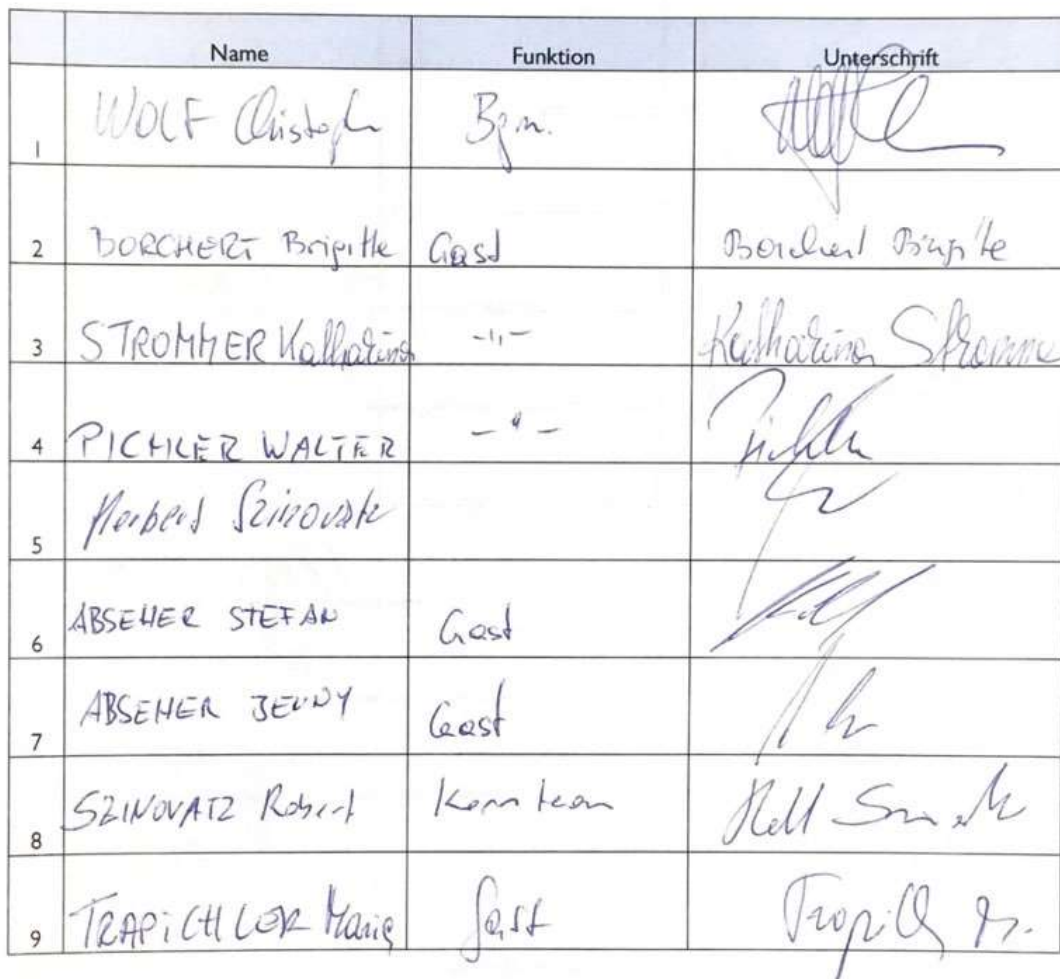 Name Funktion Unterschrift
1 WOLF Christoph Bgm.
2 BORCHERT Brigitte Gast Borchert Brigitte
3 STROMMER Katharina -"- Katharina Stromme
4 PICHLER WALTER -"- Pichler
5 Herbert Szinovatz
6 ABSEHER STEFAN Gast
7 ABSEHER JENNY Gast
8 SZINOVATZ Robert Kernteam
9 TRAPICHLER Maria Gast